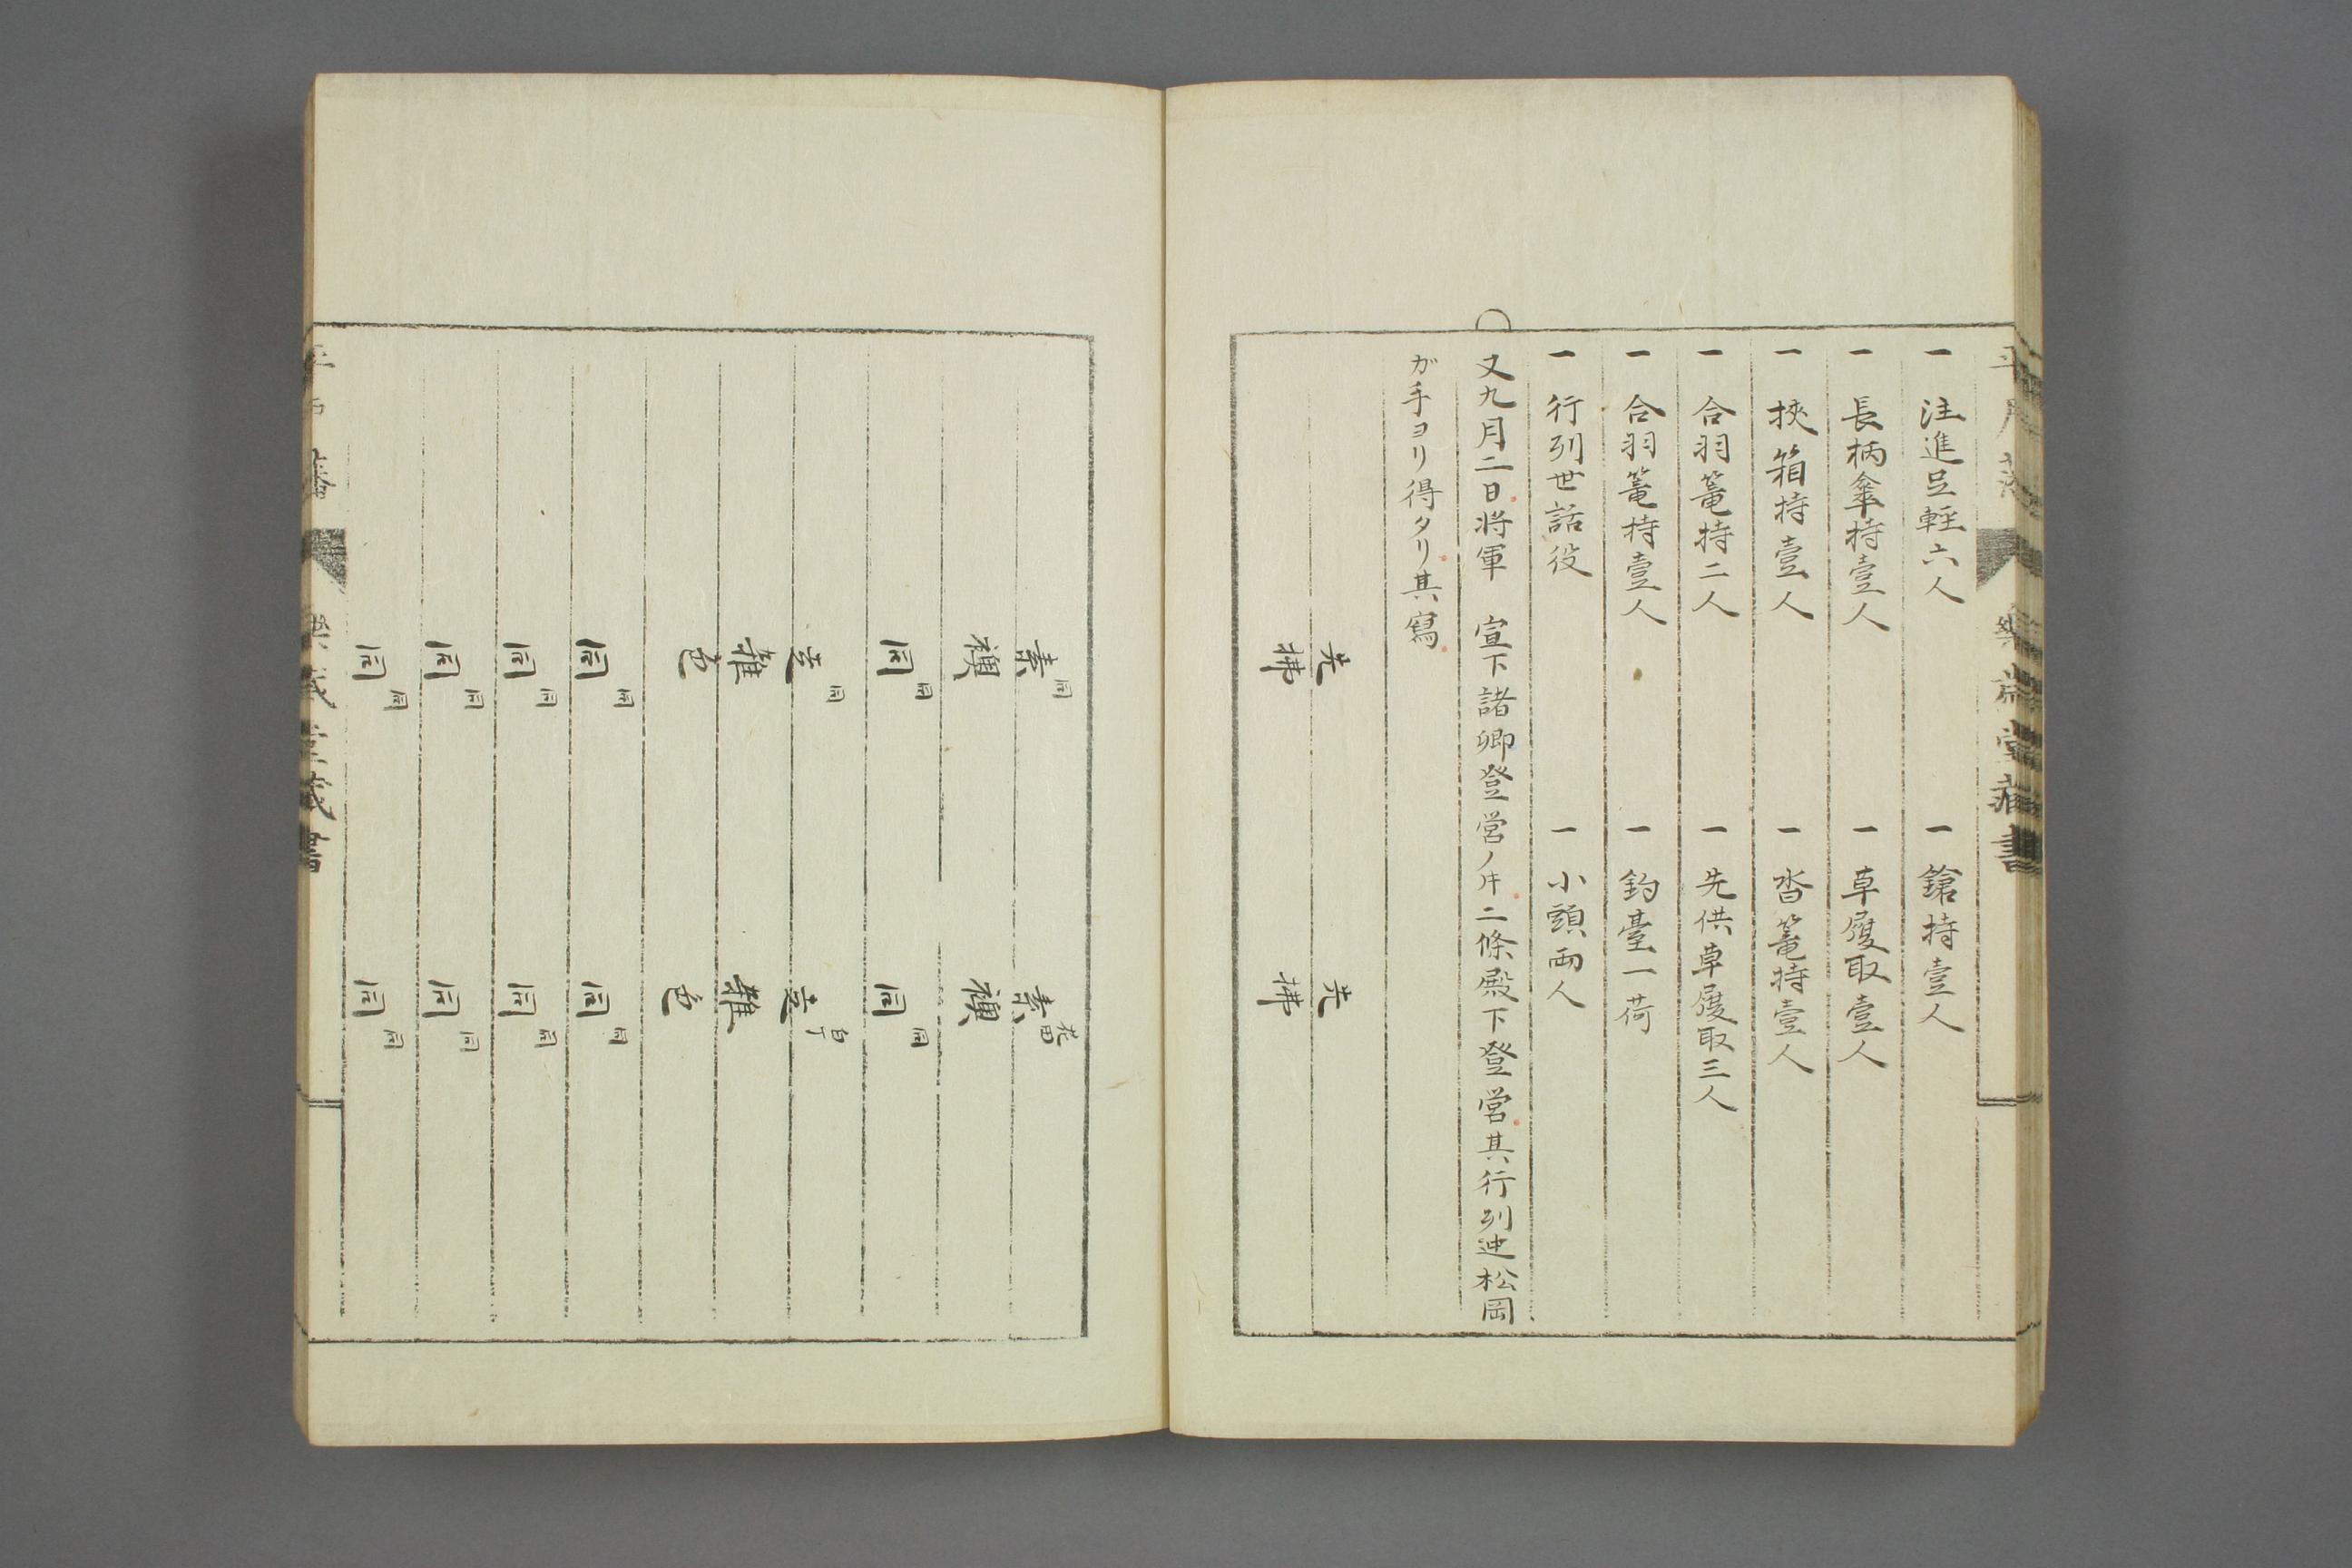 平戸藩 樂歳堂藏書
一 注進足輕六人 一 鎗持壹人
一 長柄傘持壹人 一 草履取壹人
一 挾箱持壹人 一 沓篭持壹人
一 合羽篭持二人 一 先供草履取三人
一 合羽篭持壹人 一 釣臺一荷
一 行列世話役 一 小頭両人
又九月二日将軍 宣下諸卿登営ノ𪜈二條殿下登営其行列迚松岡
が手ヨリ得タリ其寫
先拂 先拂
素襖 同 素襖 花田
同 同 同 同
雜色 同 雜色 白丁
同 同 同 同
同 同 同 同
同 同 同 同
同 同 同 同